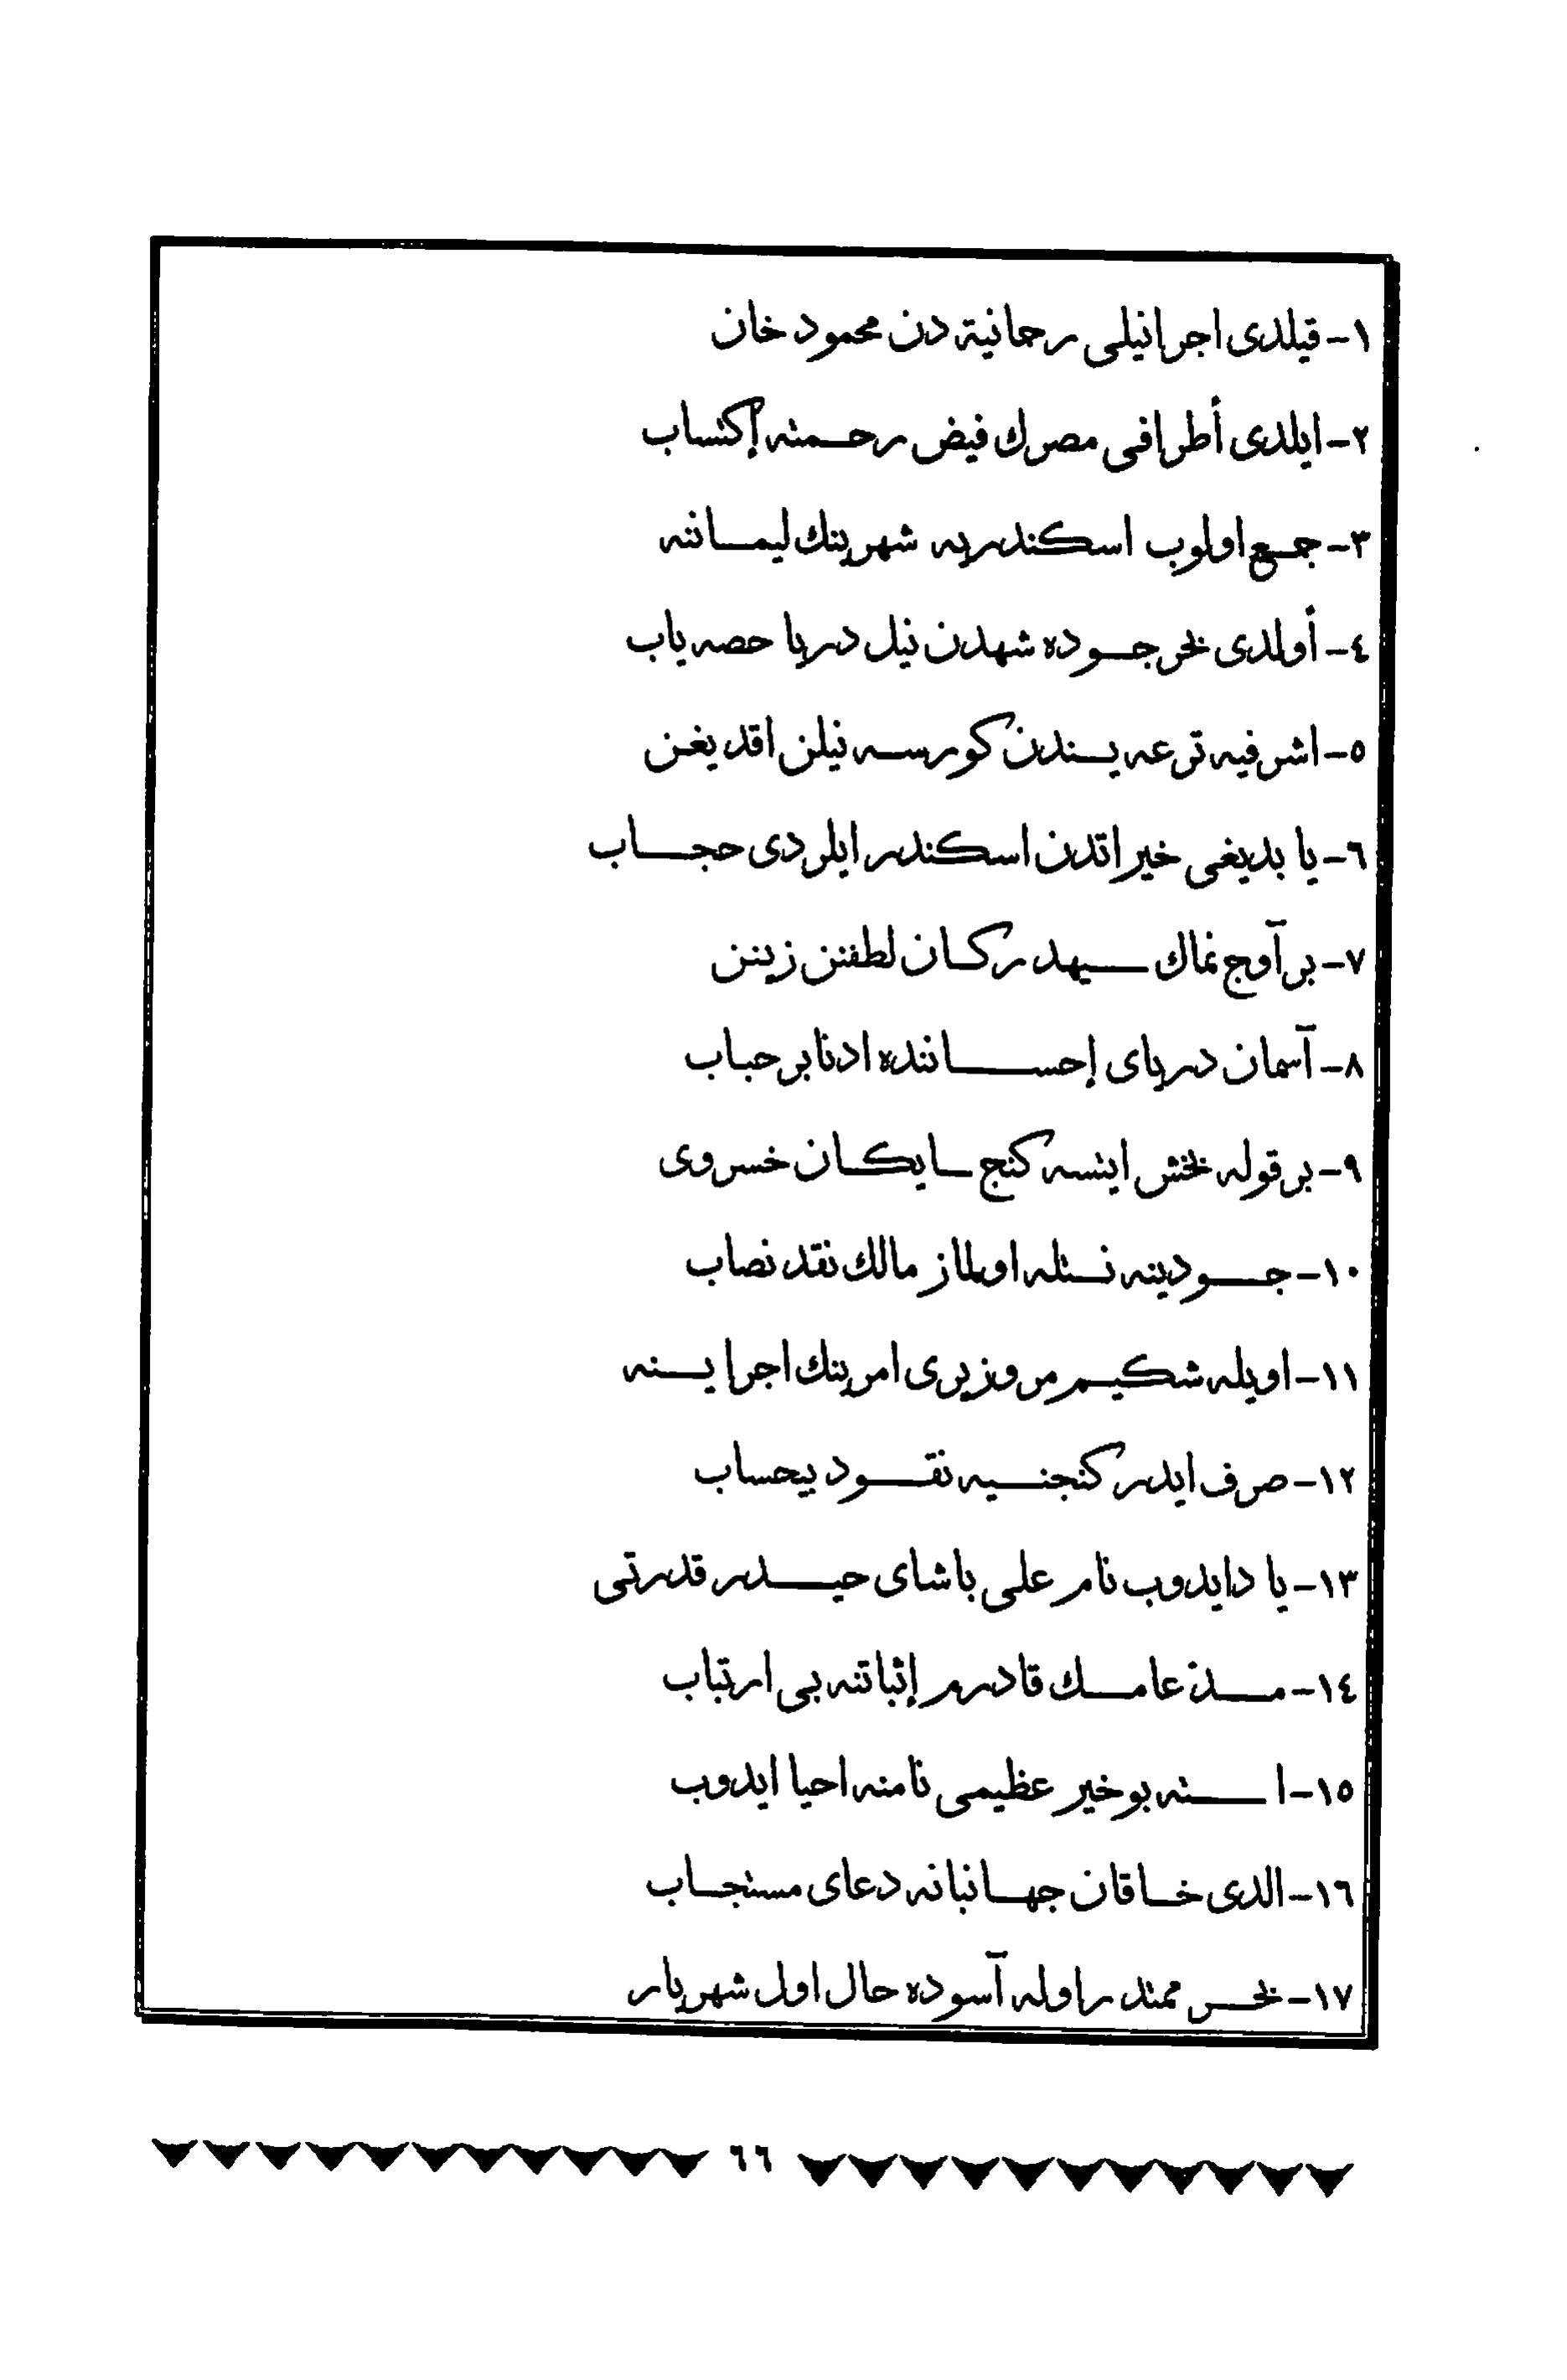 ١- قيلدى اجرا نيلى رحمانية دن محمود خان
٢- ايلدى أطرافى مصرك فيض رحمته إكتساب
٣- جمع اولوب اسكندريه شهرينك ليماننه
٤- أولدى بحر جوده شهدن نيل دريا حصه ياب
٥- اشرفيه ترعه يسندن كورسه نيلن اقديغن
٦- يا بديغى خيراتدن اسكندر ايلردى حجاب
٧- بر آوج خاك سيهدر كان لطفنن زينن
٨- آسمان درياى إحساننده ادنا بر حباب
٩- بر قوله بخش اينسه كنج سايكان خسروى
١٠- جودينه نسئله اولماز مالك نقد نصاب
١١- اويله شكيم مر وزيرى امرينك اجرا يسنه
١٢- صرف ايدر كنجنيه نقود بيحساب
١٣- يا دايدوب نام على باشاى حيدر قدرتى
١٤- مدن عامك قادرم إثباتنه بى ارتباب
١٥- ا سنه بو خير عظيمى نامنه احيا ايدوب
١٦- الدى خاقان جهانبانه دعاى مستجاب
١٧- بحر ممتد را وله آسوده حال اول شهريار
٦٦